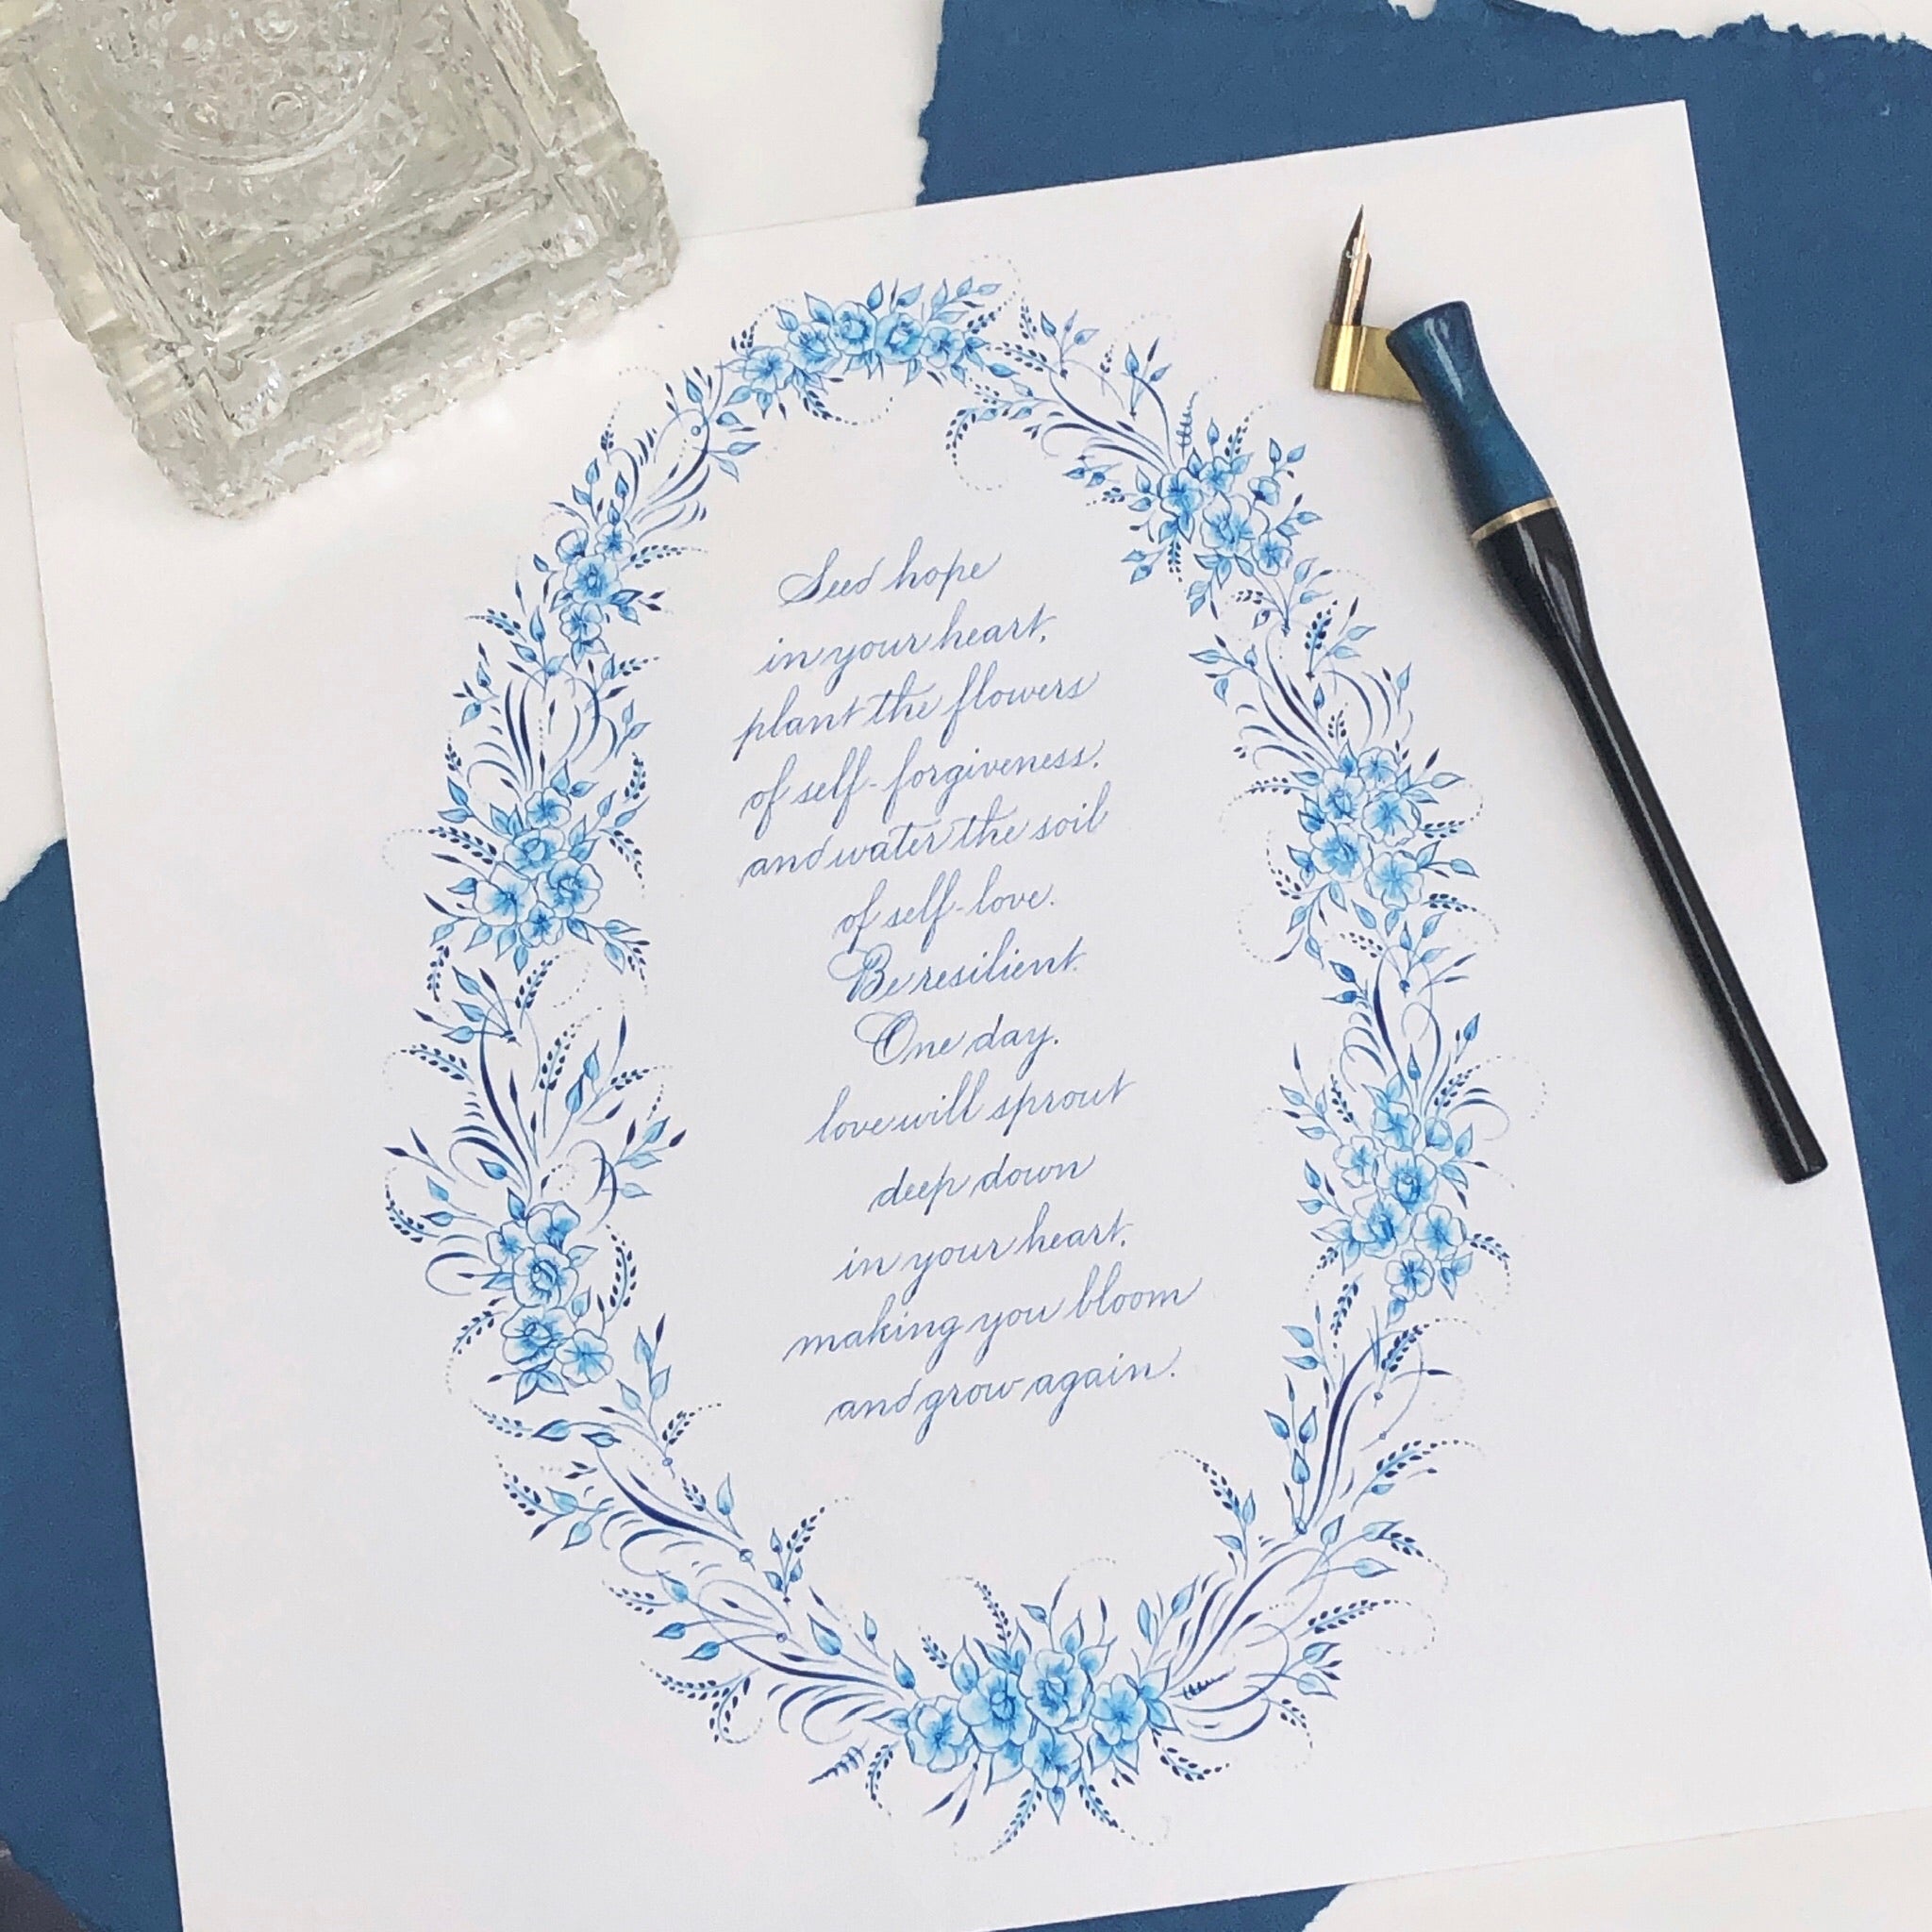 Seed hope
in your heart,
plant the flowers
of self-forgiveness,
and water the soil
of self-love.
Be resilient.
One day,
love will sprout
deep down
in your heart,
making you bloom
and grow again.